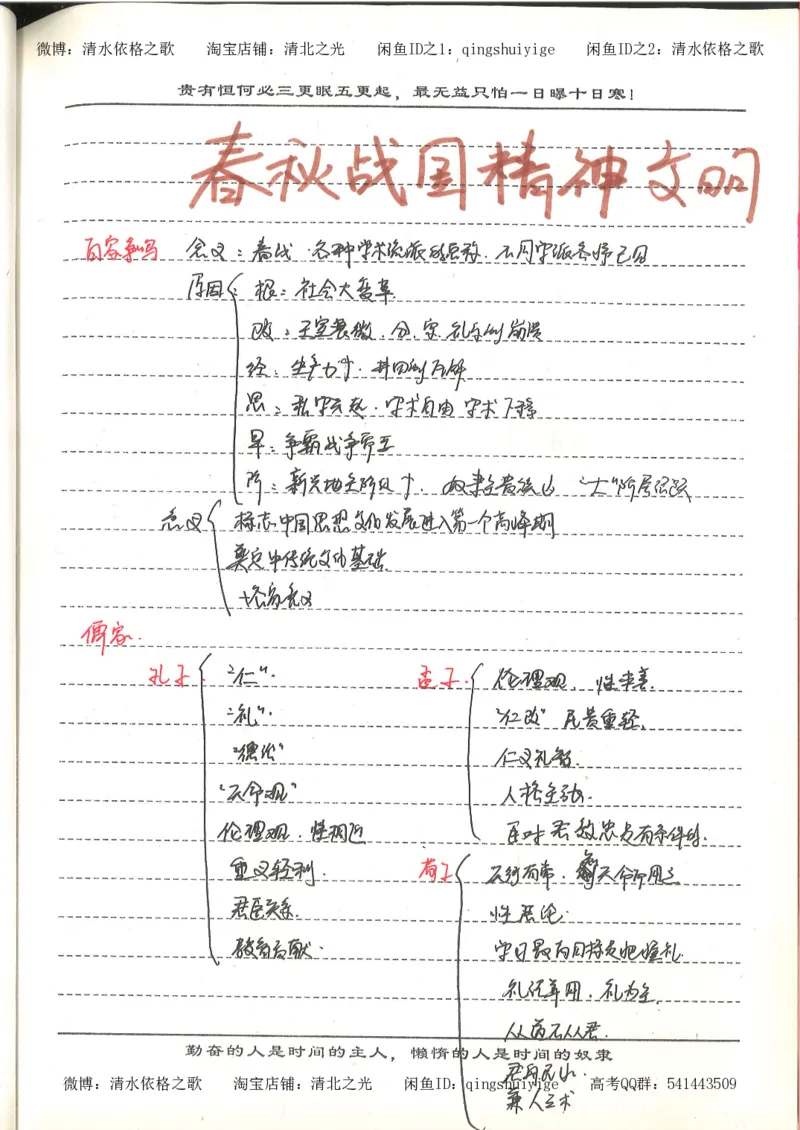 微博：清水依格之歌 淘宝店铺：清北之光 闲鱼ID之1：qingshuiyige 闲鱼ID之2：清水依格之歌
贵有恒何必三更眠五更起，最无益只怕一日曝十日寒！
春秋战国精神文明
百家争鸣 含义：春战·各种学术流派的总称．不同学派各抒己见
原因 根：社会大变革
政：王室衰微．分．宗．礼乐制崩溃
经：生产力↑．井田制瓦解
思：私学兴起．学术自由 学术下移
军：争霸战争
阶：新兴地主阶级↑．奴隶主贵族↓ “士”阶层活跃
意义 标志中国思想文化发展进入第一个高峰期
奠定中传统文化基础
儒家．
孔子 “仁”．
“礼”．
“德治”
“天命观”
伦理观．性相近
重义轻利．
君臣关系．
教育贡献．
孟子． 伦理观 性本善．
“仁政” 民贵君轻．
仁义礼智．
人格主动．
臣对君敬忠是有条件的．
荀子 天行有常．制天命而用之
性恶论．
礼法并用．礼为主．
从道不从君．
君舟民水．
兼人之术
勤奋的人是时间的主人，懒惰的人是时间的奴隶
微博：清水依格之歌 淘宝店铺：清北之光 闲鱼ID：qingshuiyige 高考QQ群：541443509